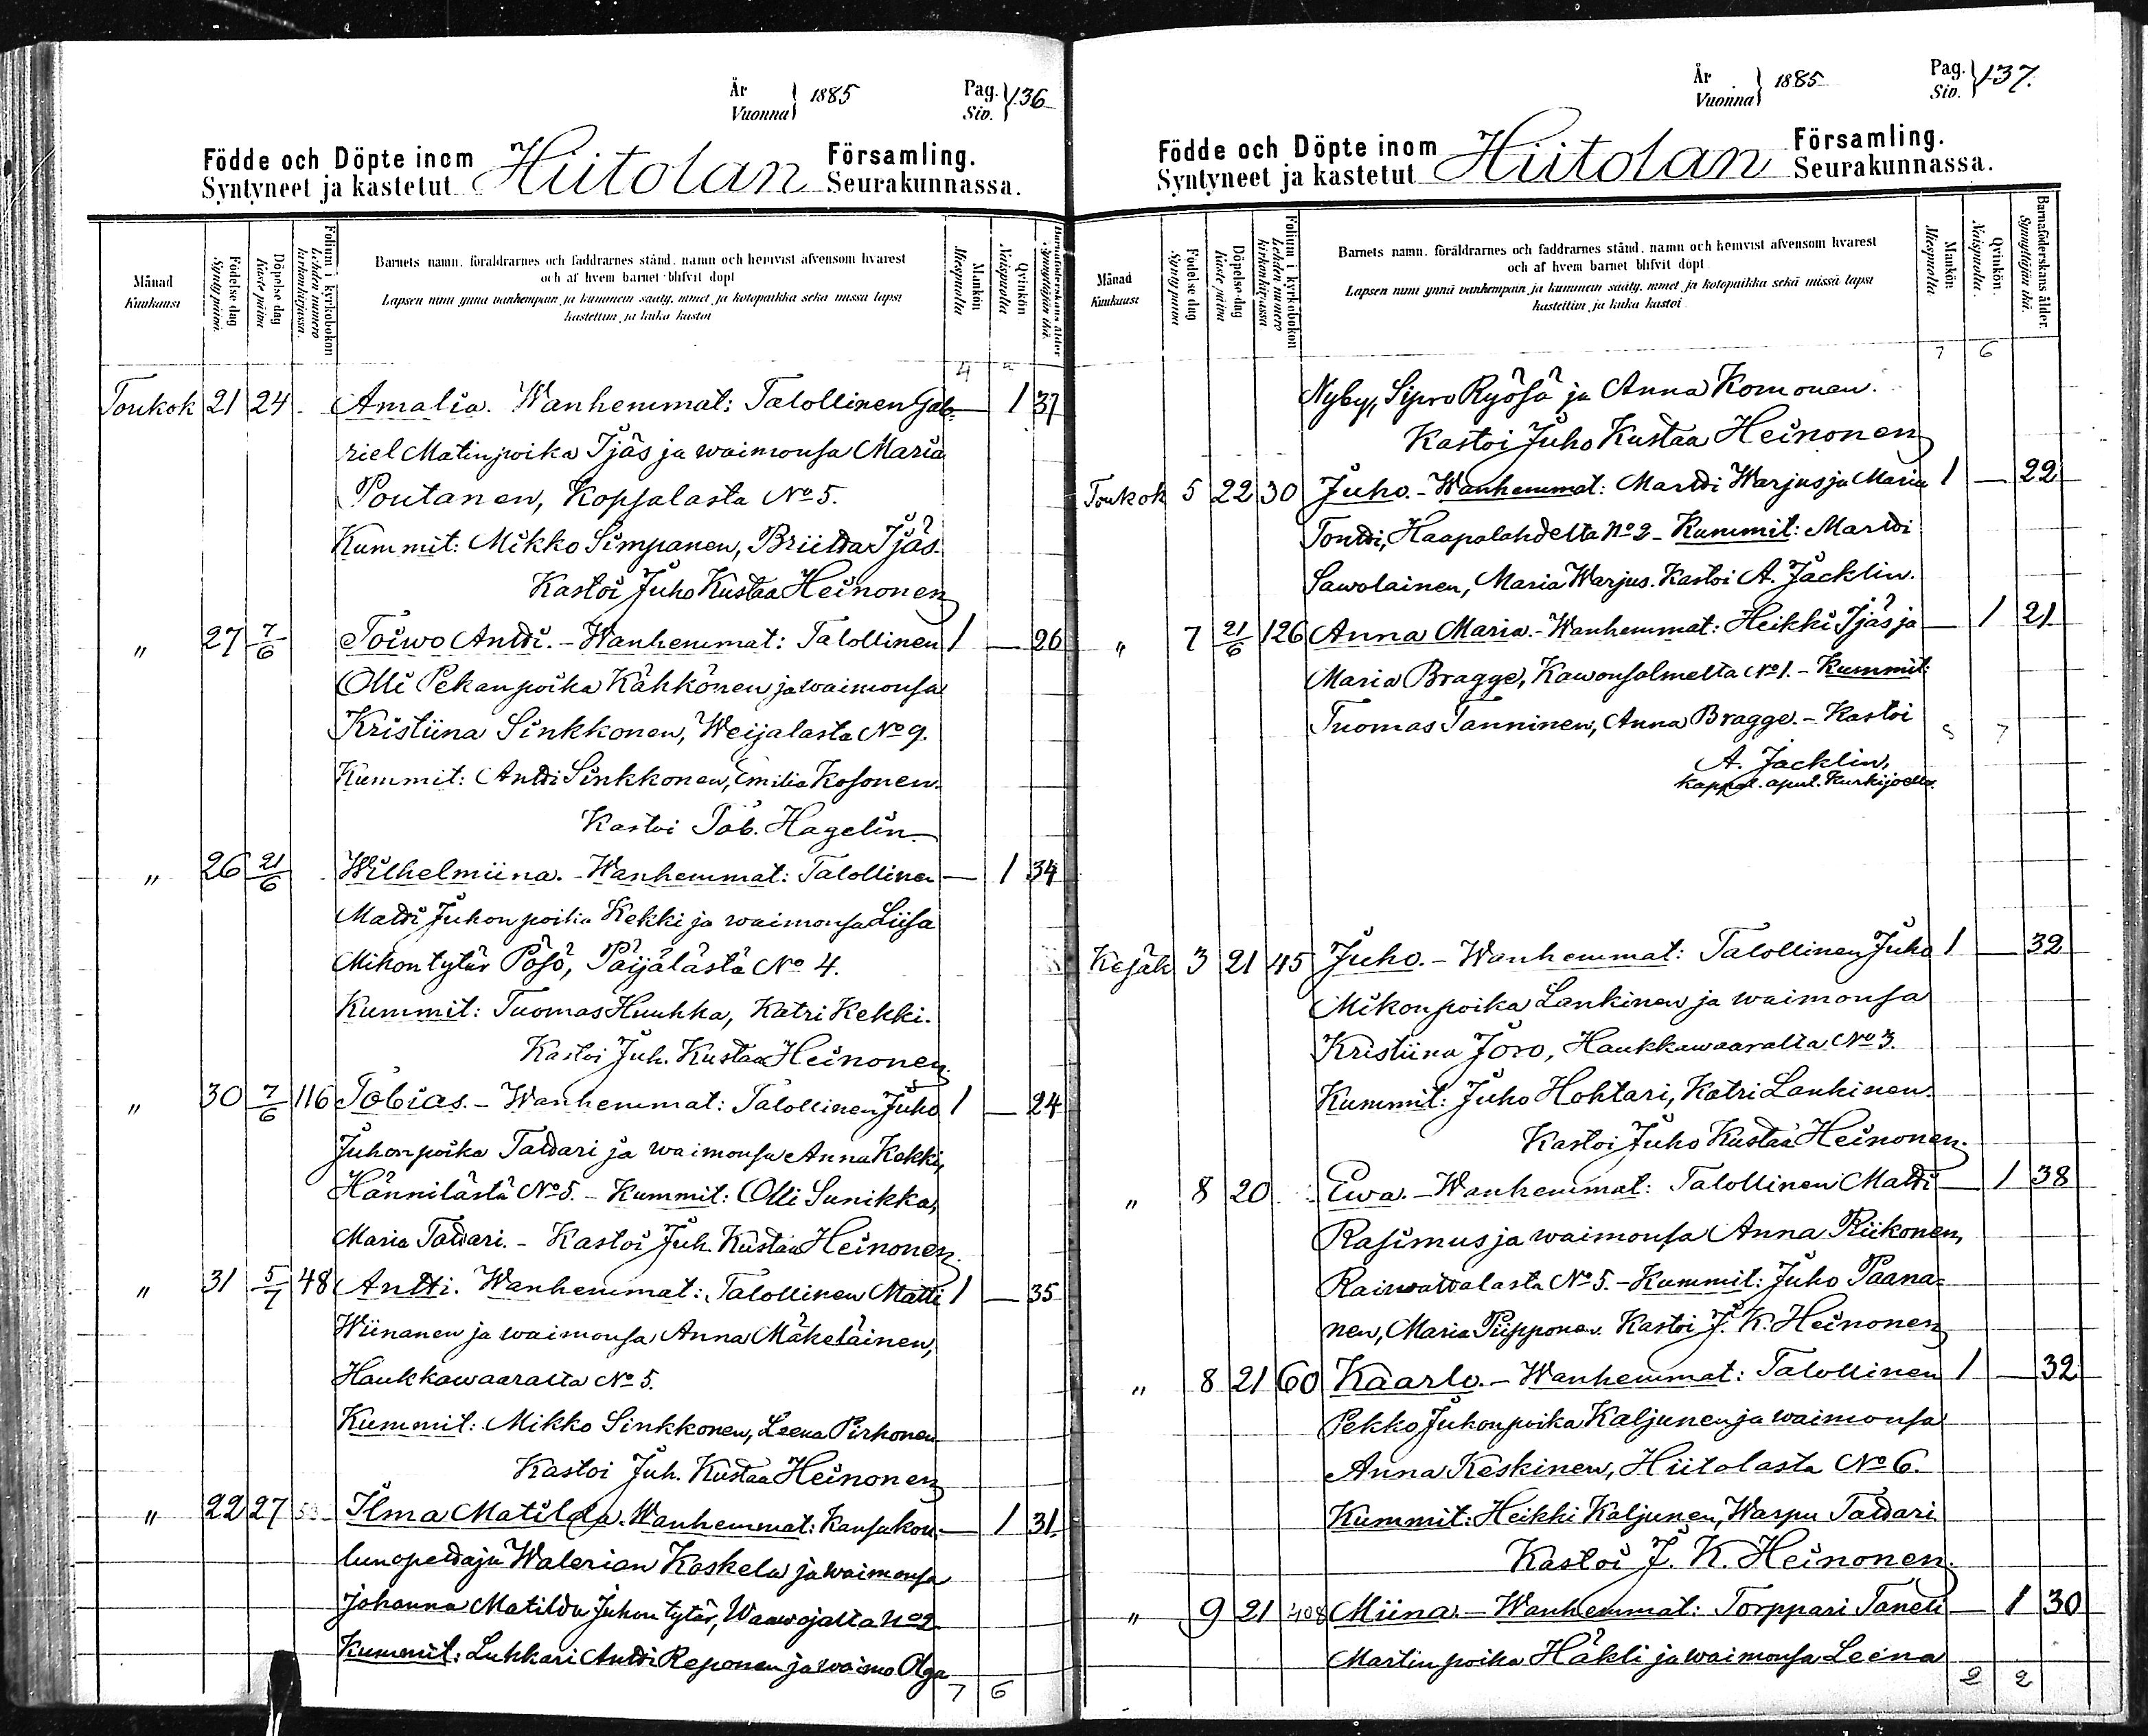 År
Vuonna } 1885
Pag.
Siv. } 136
Födde och Döpte inom Hiitolan Församling.
Syntyneet ja kastetut Seurakunnassa.
Månad
Kuukausi
Födelse dag
Synty päivä.
Döpelse dag
Kaste päivä
Folium i kyrkoboken
Lehden numero
kirkonkirjassa.
Barnets namn, föräldrarnes och faddrarnes stånd, namn och hemvist äfvensom hvarest
och af hvem barnet blifvit döpt
Lapsen nimi ynnä vanhempain ja kummein sääty, nimet ja kotopaikka sekä missä lapsi
kastettiin ja kuka kastoi
Mankön
Miespuolia
Qvinkön
Naispuolia
Barnaföderskans ålder
Synnyttäjän ikä.
4
Toukok 21 24 Amalia. Wanhemmat: Talollinen Gab- — 1 37
riel Matinpoika Ijäs ja waimonsa Maria
Poutanen, Kopsalasta No 5.
Kummit: Mikko Simpanen, Briitta Ijäs.
Kastoi Juho Kustaa Heinonen
" 27 7/6 Toiwo Antti. - Wanhemmat: Talollinen 1 — 26
Olli Pekanpoika Kähkönen ja waimonsa
Kristiina Sinkkonen, Weijalasta No 9.
Kummit: Antti Sinkkonen, Emilia Kosonen.
Kastoi Tob. Hagelin
" 26 21/6 Wilhelmiina. - Wanhemmat: Talollinen — 1 34
Matti Juhonpoika Kekki ja waimonsa Liisa
Mikontytär Pösö, Päijälästä No 4.
Kummit: Tuomas Huuhka, Katri Kekki.
Kastoi Juh. Kustaa Heinonen.
" 30 7/6 116 Tobias. - Wanhemmat: Talollinen Juho 1 — 24
Juhonpoika Tattari ja waimonsa Anna Kekki,
Hännilästä No 5. - Kummit: Olli Sunikka,
Maria Tattari. - Kastoi Juh. Kustaa Heinonen.
" 31 5/7 48 Antti. Wanhemmat: Talollinen Matti 1 — 35
Wiinanen ja waimonsa Anna Mäkeläinen,
Haukkawaaralta No 5.
Kummit: Mikko Sinkkonen, Leena Pirhonen
Kastoi Juh. Kustaa Heinonen
" 22 27 53 Ilma Matilda. Wanhemmat: Kansakou- — 1 31
lunopettaja Walerian Koskelu ja waimonsa
Johanna Matilda Juhontytär, Waawojalta No 2.
Kummit: Luhkari Antti Reponen ja waimo Olga
7 6
År
Vuonna } 1885
Pag.
Siv. } 137.
Födde och Döpte inom Hiitolan Församling.
Syntyneet ja kastetut Seurakunnassa.
Månad
Kuukausi
Födelse dag
Synty päivä
Döpelse dag
Kaste päivä
Folium i kyrkoboken
Lehden numero
kirkonkirjassa
Barnets namn, föräldrarnes och faddrarnes stånd, namn och hemvist äfvensom hvarest
och af hvem barnet blifvit döpt
Lapsen nimi ynnä vanhempain ja kummein sääty, nimet ja kotopaikka sekä missä lapsi
kastettiin ja kuka kastoi
Mankön
Miespuolia
Qvinkön
Naispuolia.
Barnaföderskans ålder.
Synnyttäjän ikä.
7 6
Nyby, Sipro Ryösä ja Anna Komonen.
Kastoi Juho Kustaa Heinonen
Toukok 5 22 30 Juho. - Wanhemmat: Martti Warjus ja Maria 1 — 22
Tontti, Haapalahdelta No 2 - Kummit: Martti
Sawolainen, Maria Warjus. Kastoi A. Jacklin.
" 7 21/6 126 Anna Maria. - Wanhemmat: Heikki Ijäs ja — 1 21
Maria Bragge, Kawonsalmelta No 1. - Kummit:
Tuomas Tanninen, Anna Bragge. - Kastoi
8 7
A. Jacklin,
kappal. apul. Kurkijoella.
Kesäk 3 21 45 Juho. - Wanhemmat: Talollinen Juho 1 — 32
Mikonpoika Lankinen ja waimonsa
Kristiina Joro, Haukkawaaralta No 3.
Kummit: Juho Hohtari, Katri Lankinen.
Kastoi Juho Kustaa Heinonen.
" 8 20 Ewa. - Wanhemmat: Talollinen Matti — 1 38
Rasimus ja waimonsa Anna Riikonen,
Raiwattalasta No 5. - Kummit: Juho Paana-
nen, Maria Piipponen. Kastoi J. K. Heinonen
" 8 21 60 Kaarlo. - Wanhemmat: Talollinen 1 — 32
Pekko Juhonpoika Kaljunen ja waimonsa
Anna Keskinen, Hiitolasta No 6.
Kummit: Heikki Kaljunen, Warpu Tattari
Kastoi J. K. Heinonen.
" 9 21 408 Miina. - Wanhemmat: Torppari Taneli — 1 30
Martinpoika Häkli ja waimonsa Leena
2 2